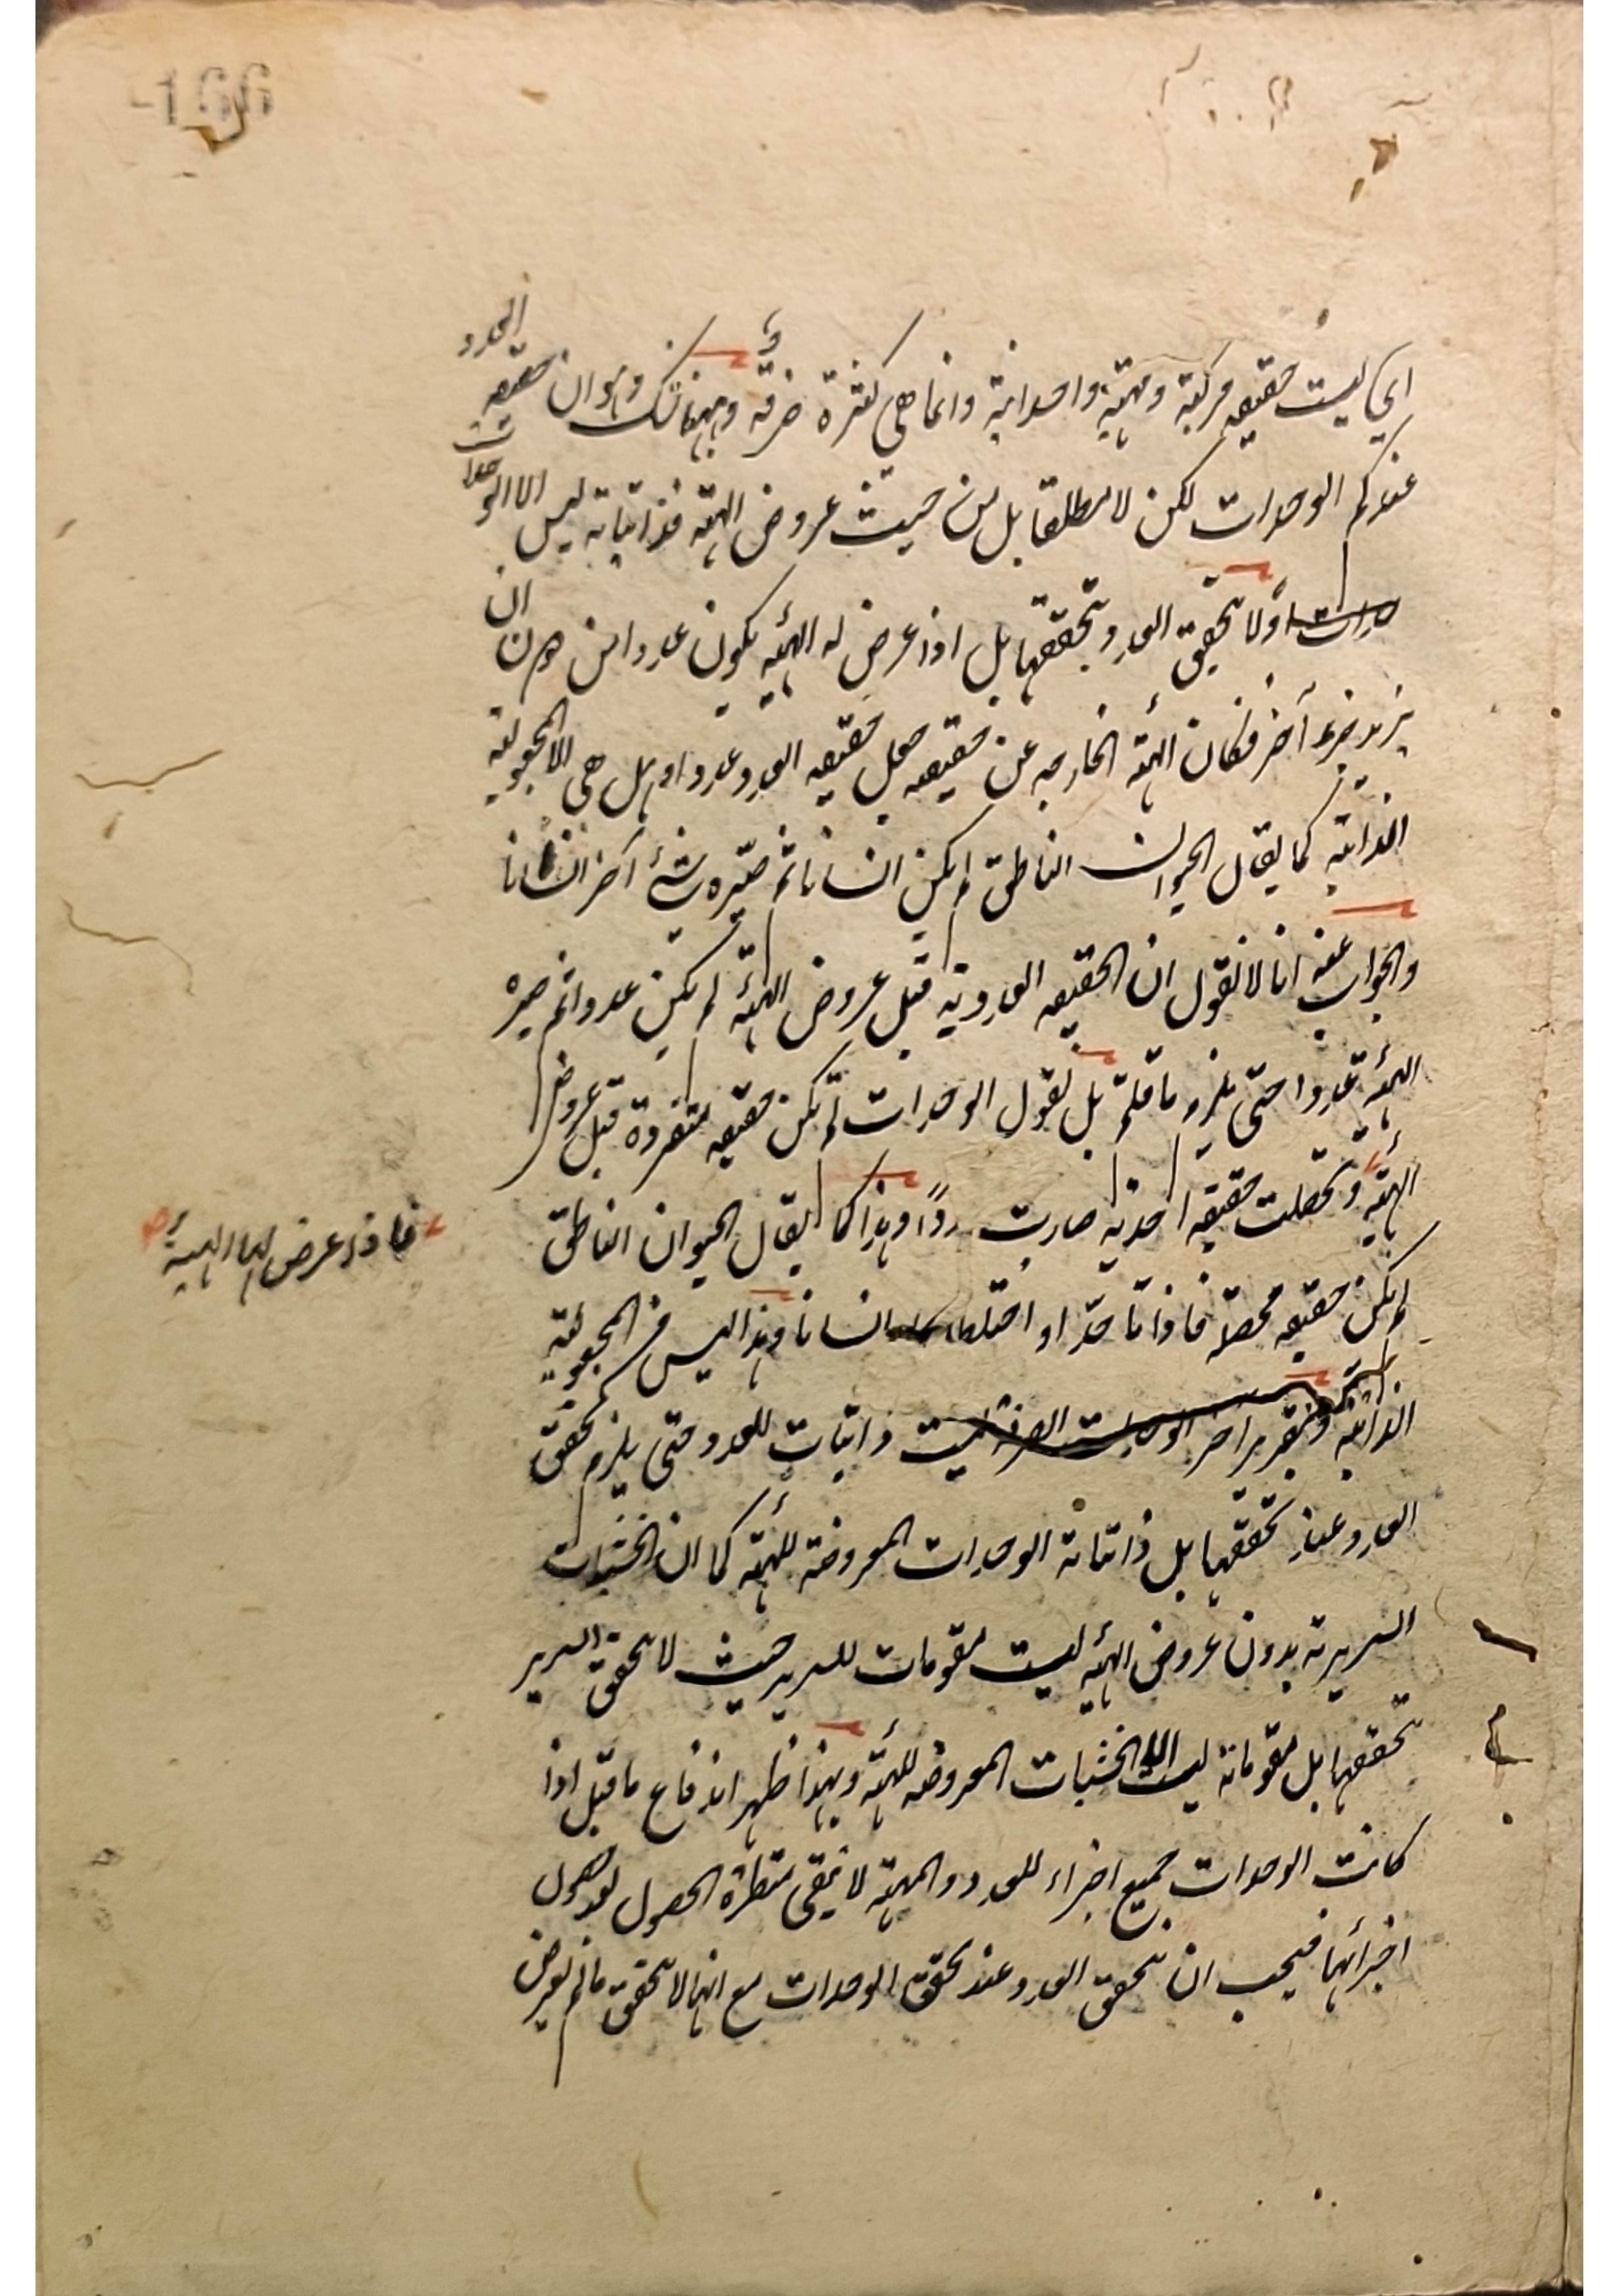 166
اي ليست حقيقه مركبة ومهيته واحدانية وانما هي كثرة صرفة وههنا شك وهو ان حقيقه العدد
عندكم الوحدات لكن لا مطلقا بل من حيث عروض الهيئه فذاتياته ليس الا الوحدات
اولا تحقق العدد بتحققها بل اذا عرض له الهيئه يكون عددا من دون ان
يزيد جزء آخر فكان الهيئه الخارجه عن حقيقه جعل حقيقه العدد عددا وهل هي الا المجعولية
الذاتيه كما يقال الحيوان الناطق لم يكن انسانا ثم صيره شئ آخر انسانا
والجواب عنه انا لا نقول ان الحقيقه العدديه قبل عروض الهيئه لم يكن عددا ثم صيره
الهيئه عددا حتى يلزم ما قلتم بل نقول الوحدات لم يكن حقيقه متفردة قبل عروض
الهيئه وتحصلت حقيقه احديه صارت وهذا كما يقال الحيوان الناطق
فاذا عرض لها الهيئة
لم يكن حقيقه محصلة فاذا اتحدا او اختلطا انسانا وهذا ليس في المجعولية
الذاتيه وبتقرير آخر الوحدات الصرفة ليست ذاتيات للعدد حتى يلزم تحقق
العدد عند تحققها بل ذاتياته الوحدات المعروضة للهيئه كما ان الخشبات
السريرية بدون عروض الهيئه ليست مقومات للسرير حيث لا تحقق السرير
بتحققها بل مقوماته ليست الا الخشبات المعروضه للهيئه وبهذا ظهر اندفاع ما قيل اذا
كانت الوحدات جميع اجزاء للعدد والمهيته لا تبقى منتظرة الحصول بعد حصول
اجزائها فيجب ان يتحقق العدد عند تحقق الوحدات مع انها لا تتحقق مالم يعرض